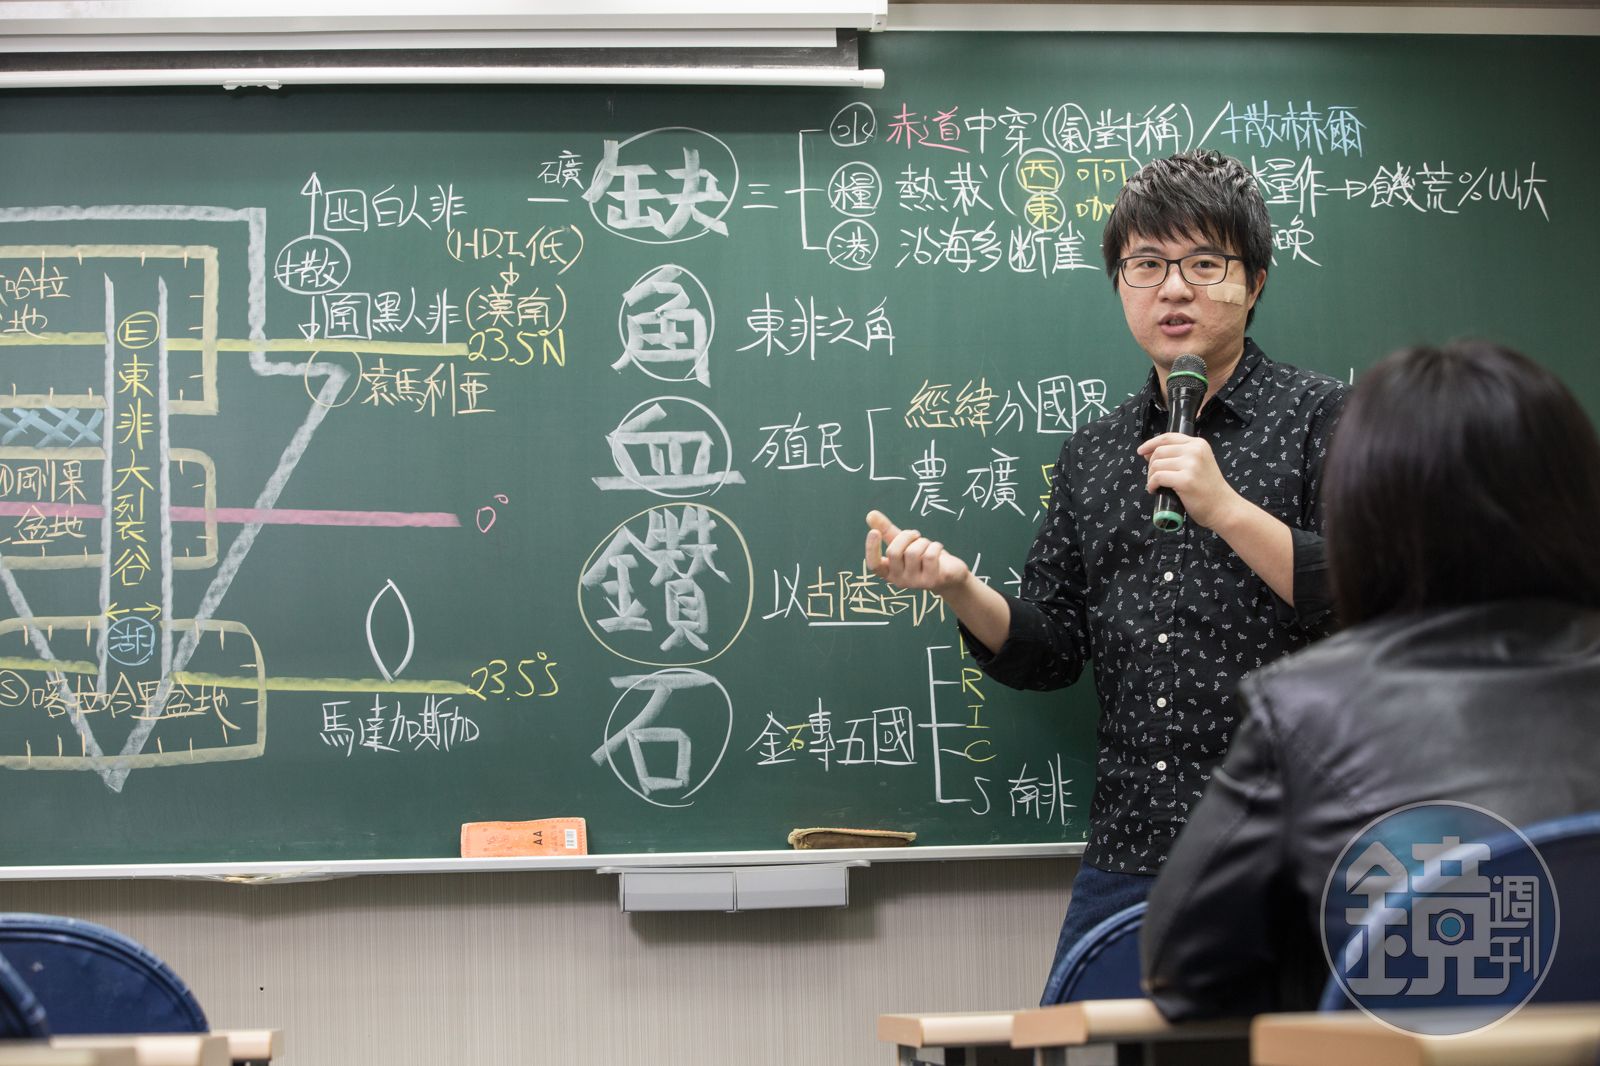 北 白人非
(HDI低)
撒
南 黑人非(漠南)
23.5°N
索馬利亞
哈拉
地
E
東非大裂谷
剛果
盆地
0°
湖
S 喀拉哈里盆地
23.5°S
馬達加斯加
一礦 缺 三
水 赤道中穿(氣對稱)/撒赫爾
糧 熱栽(西 可
東 咖
糧作→饑荒%W大
港 沿海多斷崖
晚
角 東非之角
血 殖民
經緯分國界
農,礦,
鑽 以古陸高原
石 金磚五國
R
I
C
S 南非
AA
鏡週刊